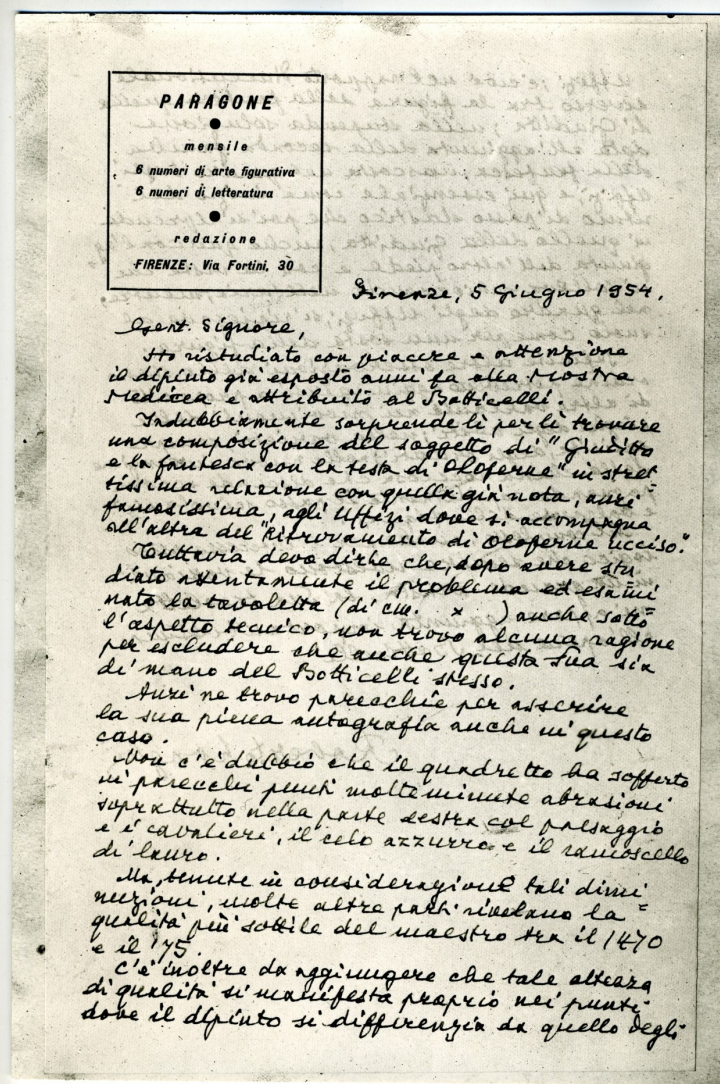 PARAGONE
mensile
6 numeri di arte figurativa
6 numeri di letteratura
redazione
FIRENZE: Via Fortini, 30
Firenze, 5 Giugno 1954.
Gent. Signore,
Ho ristudiato con piacere e attenzione
il dipinto già esposto anni fa alla Mostra
Medicea e attribuito al Botticelli.
Indubbiamente sorprende lì per lì trovare
una composizione del soggetto di "Giuditta
e la fantesca con la testa di Oloferne" in stret=
tissima relazione con quella già nota, anzi
famosissima, agli Uffizi dove si accompagna
all'altra del "Ritrovamento di Oloferne ucciso".
Tuttavia devo dirLe che, dopo avere stu
diato attentamente il problema ed esami
nato la tavoletta (di cm. x ) anche sotto
l'aspetto tecnico, non trovo alcuna ragione
per escludere che anche questa Sua sia
di mano del Botticelli stesso.
Anzi ne trovo parecchie per asserire
la sua piena autografia anche in questo
caso.
Non c'è dubbio che il quadretto ha sofferto
in parecchi punti molte minute abrasioni
soprattutto nella parte destra col paesaggio
e i cavalieri, il cielo azzurro e il ramoscello
di lauro.
Ma, tenute in considerazione tali dimi
nuzioni, molte altre parti rivelano la
qualità più sottile del maestro tra il 1470
e il '75.
C'è inoltre da aggiungere che tale altezza
di qualità si manifesta proprio nei punti
dove il dipinto si differenzia da quello degli